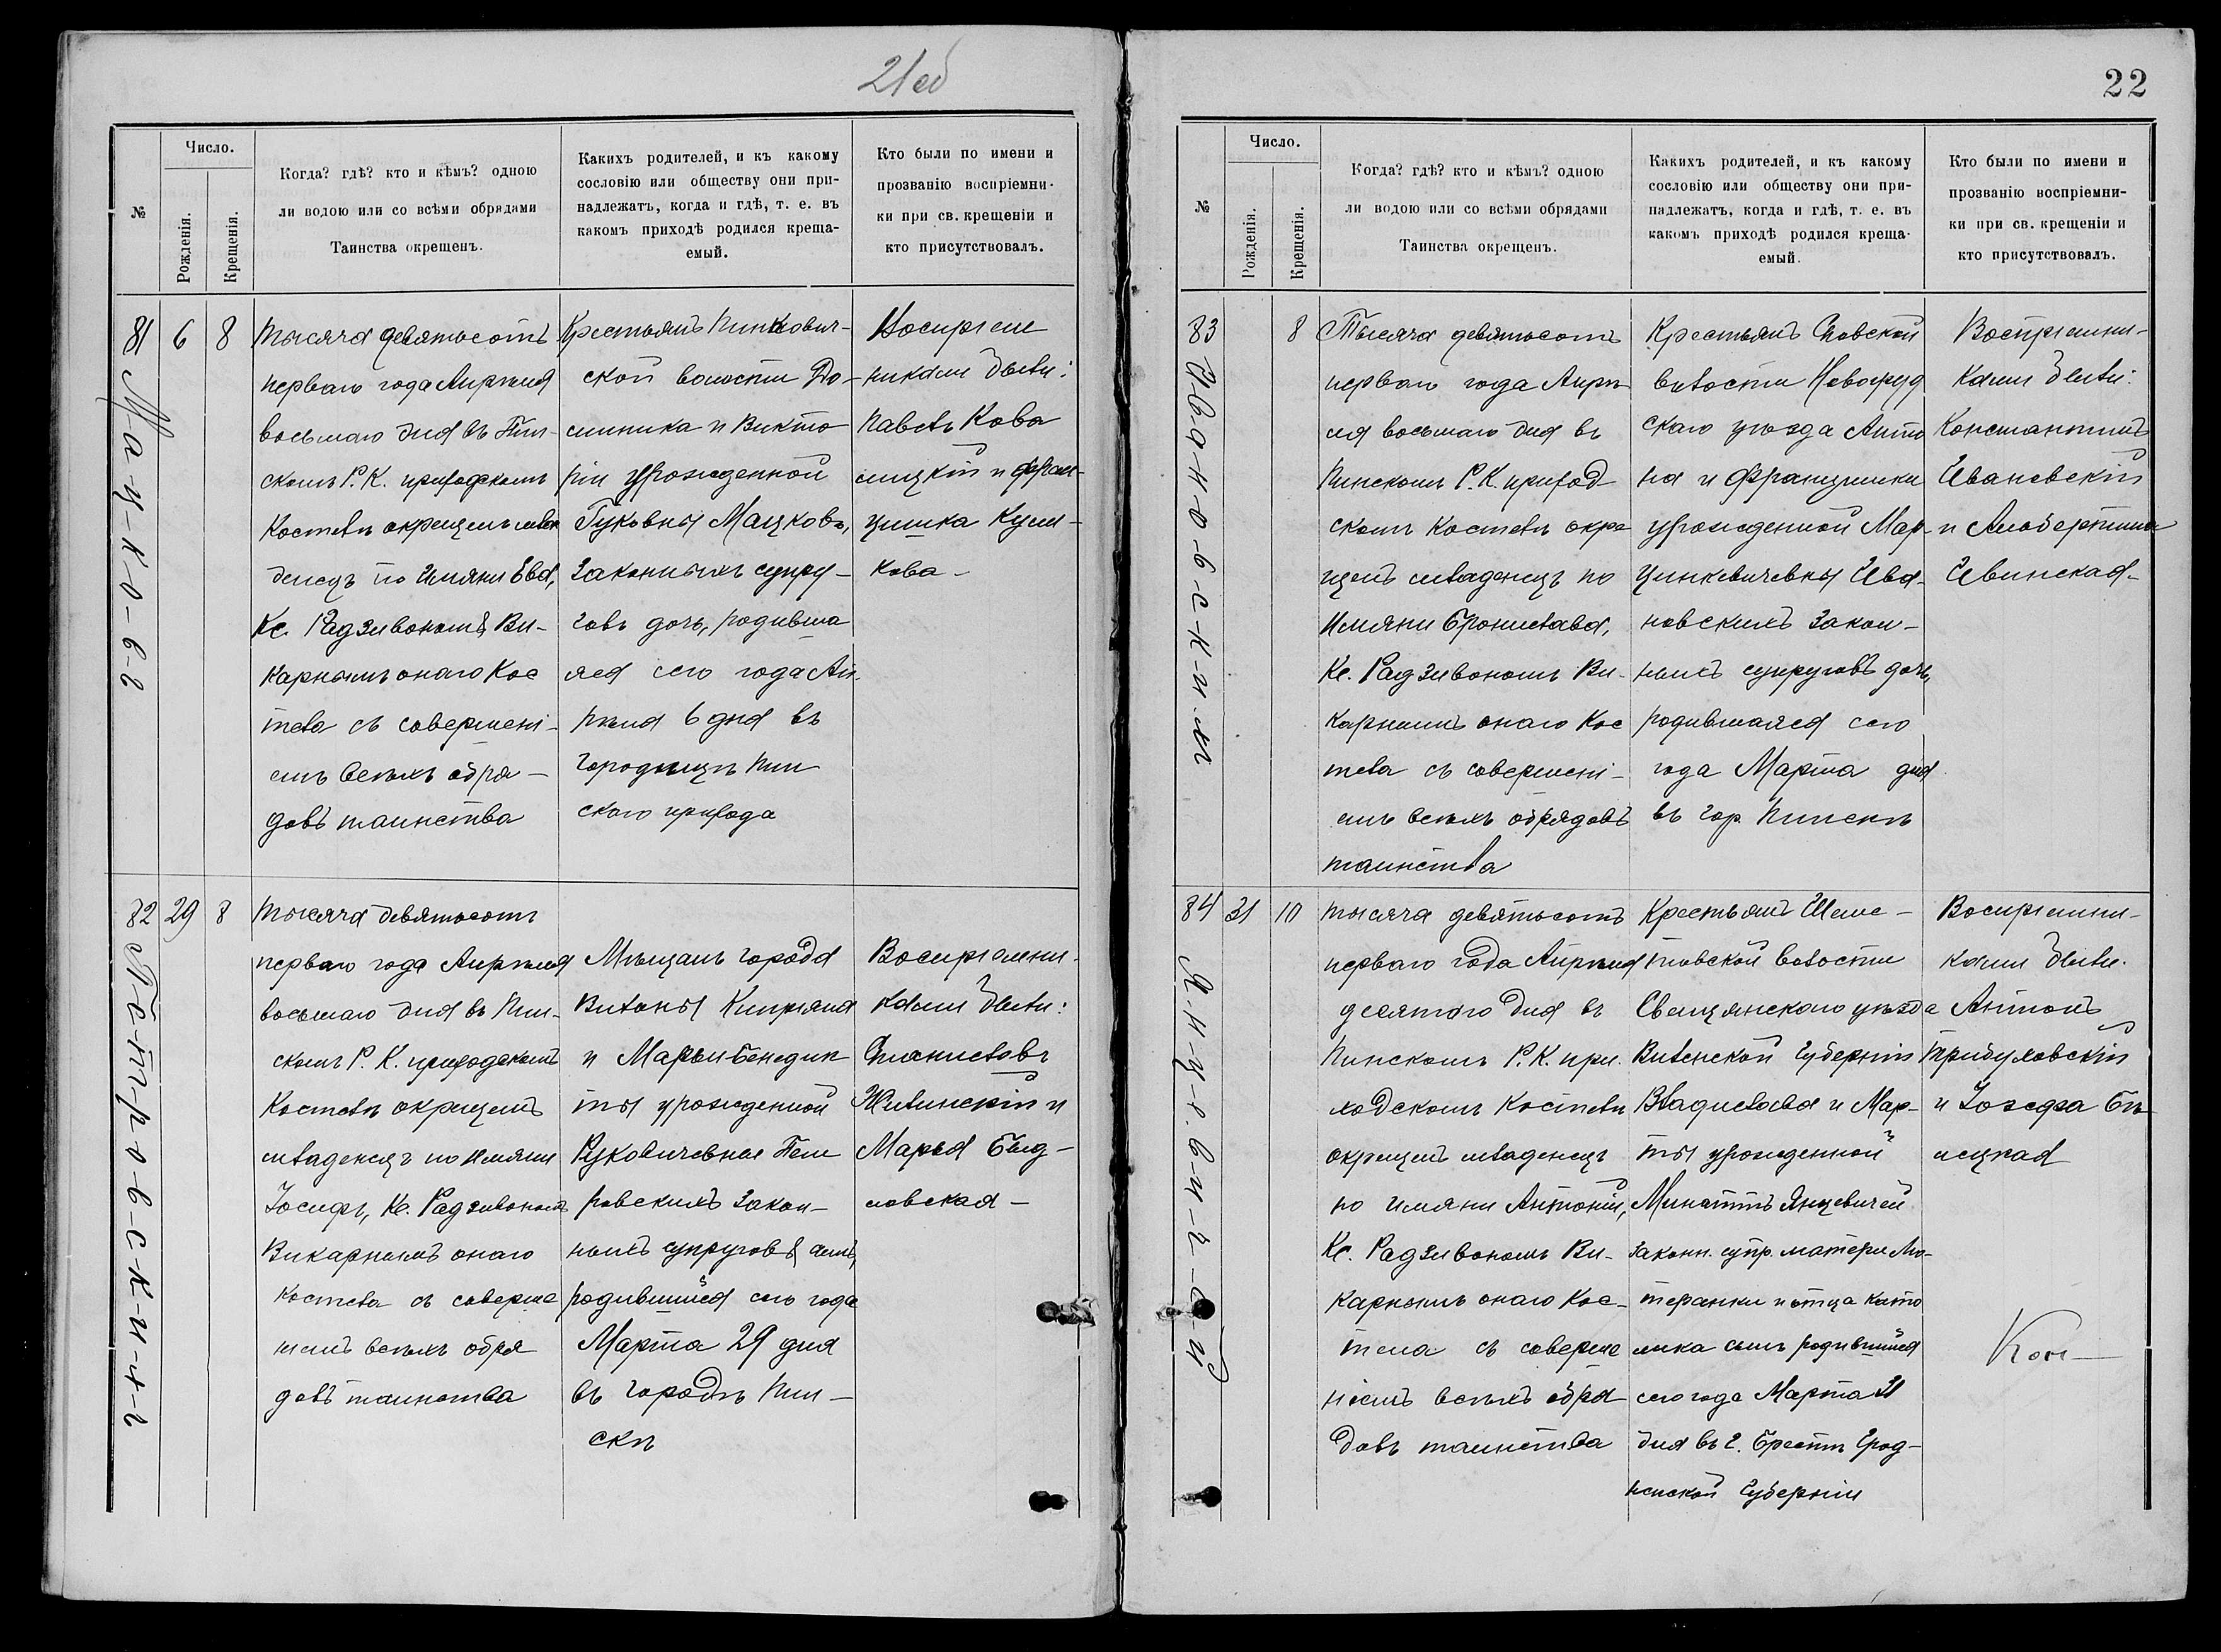 21об
Число.
№
Рожденія.
Крещенія.
Когда? гдѣ? кто и кѣмъ? одною
ли водою или со всѣми обрядами
Таинства окрещенъ.
Какихъ родителей, и къ какому
сословію или обществу они при-
надлежатъ, когда и гдѣ, т. е. въ
какомъ приходѣ родился креща-
емый.
Кто были по имени и
прозванію воспріемни-
ки при св. крещеніи и
кто присутствовалъ.
81 6 8
М-а-ц-к-о-в-ъ
Тысяча девятьсотъ
перваго года Апрѣля
восьмаго дня въ Пин-
скомъ Р. К. приходскомъ
Костелѣ окрещенъ мла
денецъ по Имяни Ева,
Кс. Радзивономъ Ви-
карнымъ онаго Кос
тела съ совершені-
емъ всѣхъ обря-
довъ таинства
Крестьянъ Пинкович-
ской волости До-
миника и Викто
ріи урожденной
Гуковны Мацковъ,
Законныхъ супру-
говъ дочь, родивша
яся сего года Ап-
рѣля 6 дня въ
Городищѣ Пин
скаго прихода
Воспріем
никами были:
Павелъ Кова
лицкій и Фран-
цишка Кули-
кова-
82 29 8
П-е-т-р-о-в-с-к-и-й
Тысяча девятьсотъ
перваго года Апрѣля
восьмаго дня въ Пин-
скомъ Р. К. приходскомъ
Костелѣ окрещенъ
младенецъ по Имяни
Іосифъ, Кс. Радзивономъ
Викарнымъ онаго
костела съ соверше
ніемъ всѣхъ обря
довъ таинства
Мѣщанъ города
Вильны Кипріяна
и Маріи-Бенедик
ты урожденной
Руковичевны Пет
ровскихъ Закон-
ныхъ супруговъ сынъ,
родившійся сего года
Марта 29 дня
въ городѣ Пин-
скѣ
Воспріемни-
ками были:
Станиславъ
Жилинскій и
Марья Быд-
ловская-
22
Число.
№
Рожденія.
Крещенія.
Когда? гдѣ? кто и кѣмъ? одною
ли водою или со всѣми обрядами
Таинства окрещенъ.
Какихъ родителей, и къ какому
сословію или обществу они при-
надлежатъ, когда и гдѣ, т. е. въ
какомъ приходѣ родился креща-
емый.
Кто были по имени и
прозванію воспріемни-
ки при св. крещеніи и
кто присутствовалъ.
83 8
И-в-а-н-о-в-с-к-и-
Тысяча девятьсотъ
перваго года Апрѣ
ля восьмаго дня въ
Пинскомъ Р. К. приход-
скомъ Костелѣ окре
щенъ младенецъ по
Имяни Бронислава,
Кс. Радзивономъ Ви-
карнымъ онаго Кос
тела съ совершені-
емъ всѣхъ обрядовъ
таинства
Крестьянъ
волости Новогруд
скаго уѣзда Анто
на и Францишки
урожденной Мар-
цинкевичевны Ива-
новскихъ Закон-
ныхъ супруговъ дочь,
родившаяся сего
года Марта дня
въ гор. Пинскѣ
Воспріемни-
ками были:
Константинъ
Ивановскій
и Альбертина
Ивинская-
84 31 10
Я-н-ц-е-в-и-ч-е-й
Тысяча девятьсотъ
перваго года Апрѣля
десятаго дня въ
Пинскомъ Р. К. при-
ходскомъ Костелѣ
окрещенъ младенецъ
по имяни Антоній,
Кс. Радзивономъ Ви-
карнымъ онаго Кос-
тела съ соверше
ніемъ всѣхъ обря
довъ таинства
Крестьянъ Шеме-
товской волости
Свенцянскаго уѣзда
Виленской Губерніи
Владислава и Мар-
ты урожденной
Янцевичей
законн. супр. матери Лю-
теранки и отца като
лика сынъ родившійся
сего года Марта 31
дня въ г. Брестѣ Грод-
ненской Губерніи
Воспріемни-
ками были.
Антонъ
Трибуховскій
и Іозефа Бѣ-
лецкая
Кон-